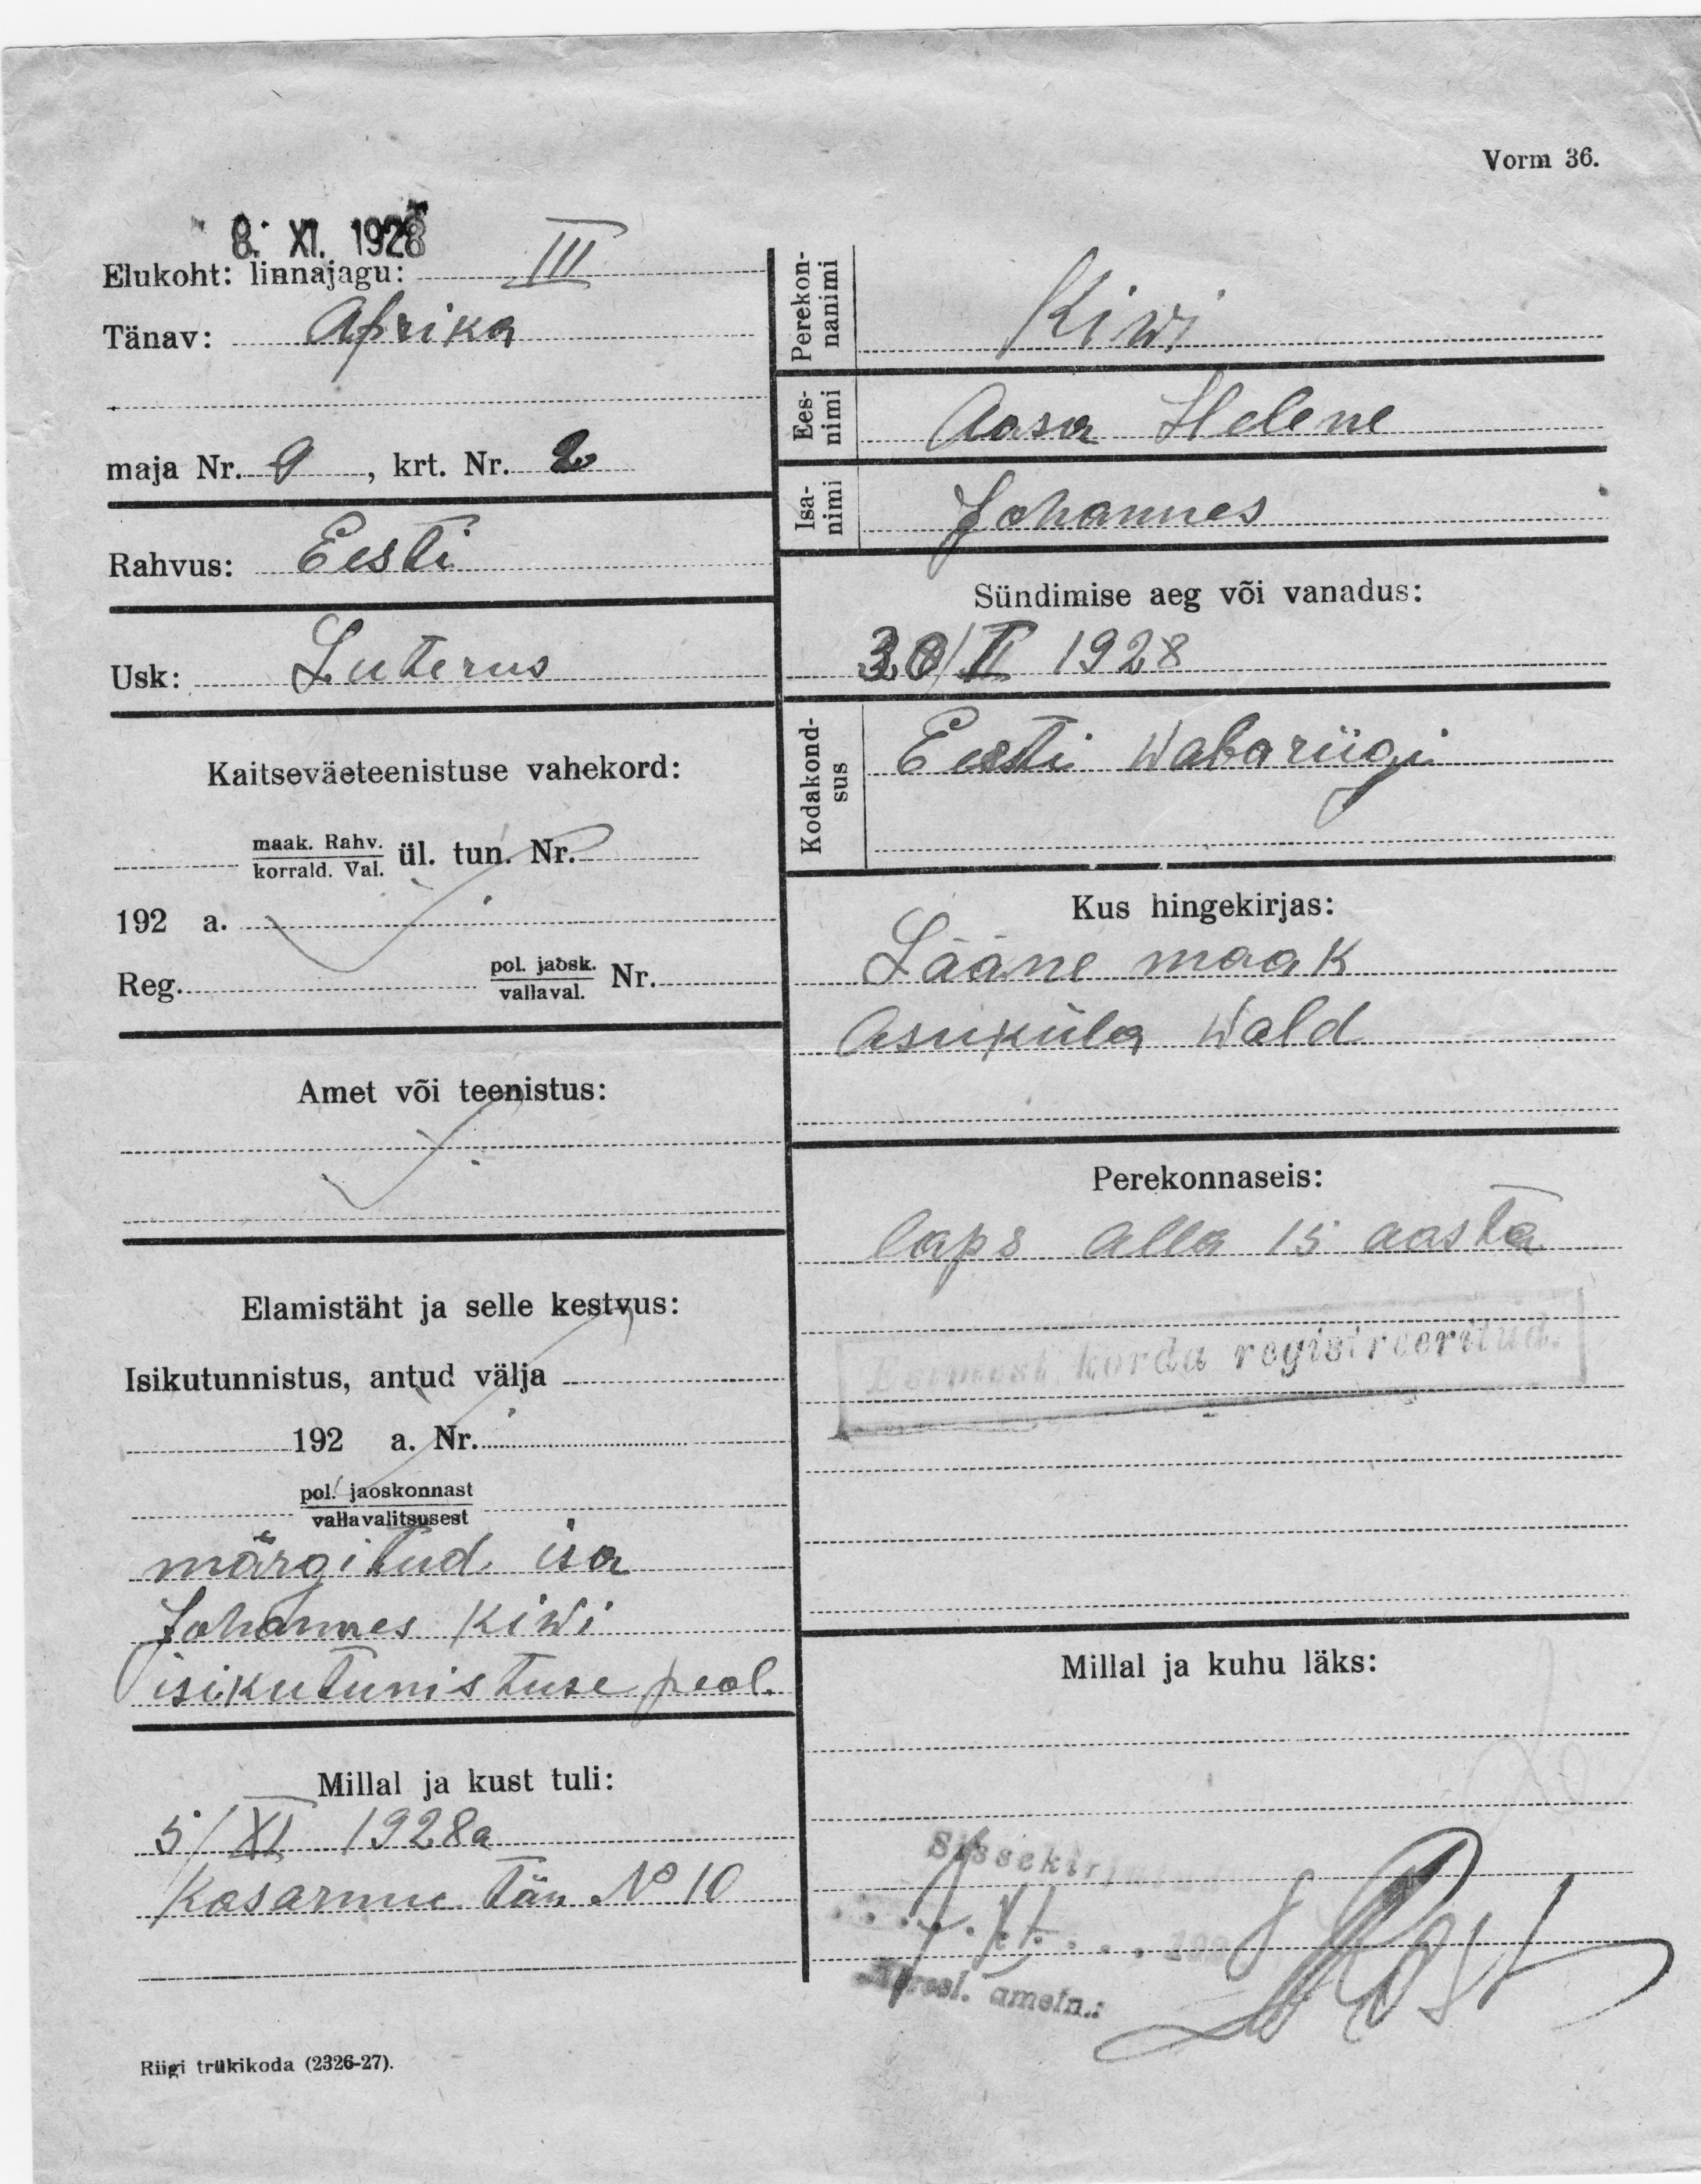 Vorm 36.
8. XI. 1928
Elukoht: linnajagu: III
Tänav: Aprika
maja Nr. 9, krt. Nr. 2
Rahvus: Eesti
Usk: Luterus
Kaitseväeteenistuse vahekord:
maak. Rahv.
korrald. Val. ül. tun. Nr.
192 a.
Reg. pol. jaosk.
vallaval. Nr.
Amet või teenistus:
Elamistäht ja selle kestvus:
Isikutunnistus, antud välja
192 a. Nr.
pol. jaoskonnast
vallavalitsusest
märgitud isa
Johannes Kiwi
isikutunistuse peal.
Millal ja kust tuli:
5/XI 1928a
Kasarmu tän № 10
Riigi trükikoda (2326-27).
Perekon-
nanimi
Kiwi
Ees-
nimi
Aasa Helene
Isa-
nimi
Johannes
Sündimise aeg või vanadus:
30/II 1928
Kodakond-
sus
Eesti Wabariigi
Kus hingekirjas:
Lääne maak
Asuküla Wald
Perekonnaseis:
laps alla 15 aasta
Esimest korda registreeritud.
Millal ja kuhu läks:
Sissekirjutatud
XI 192
ametn.: